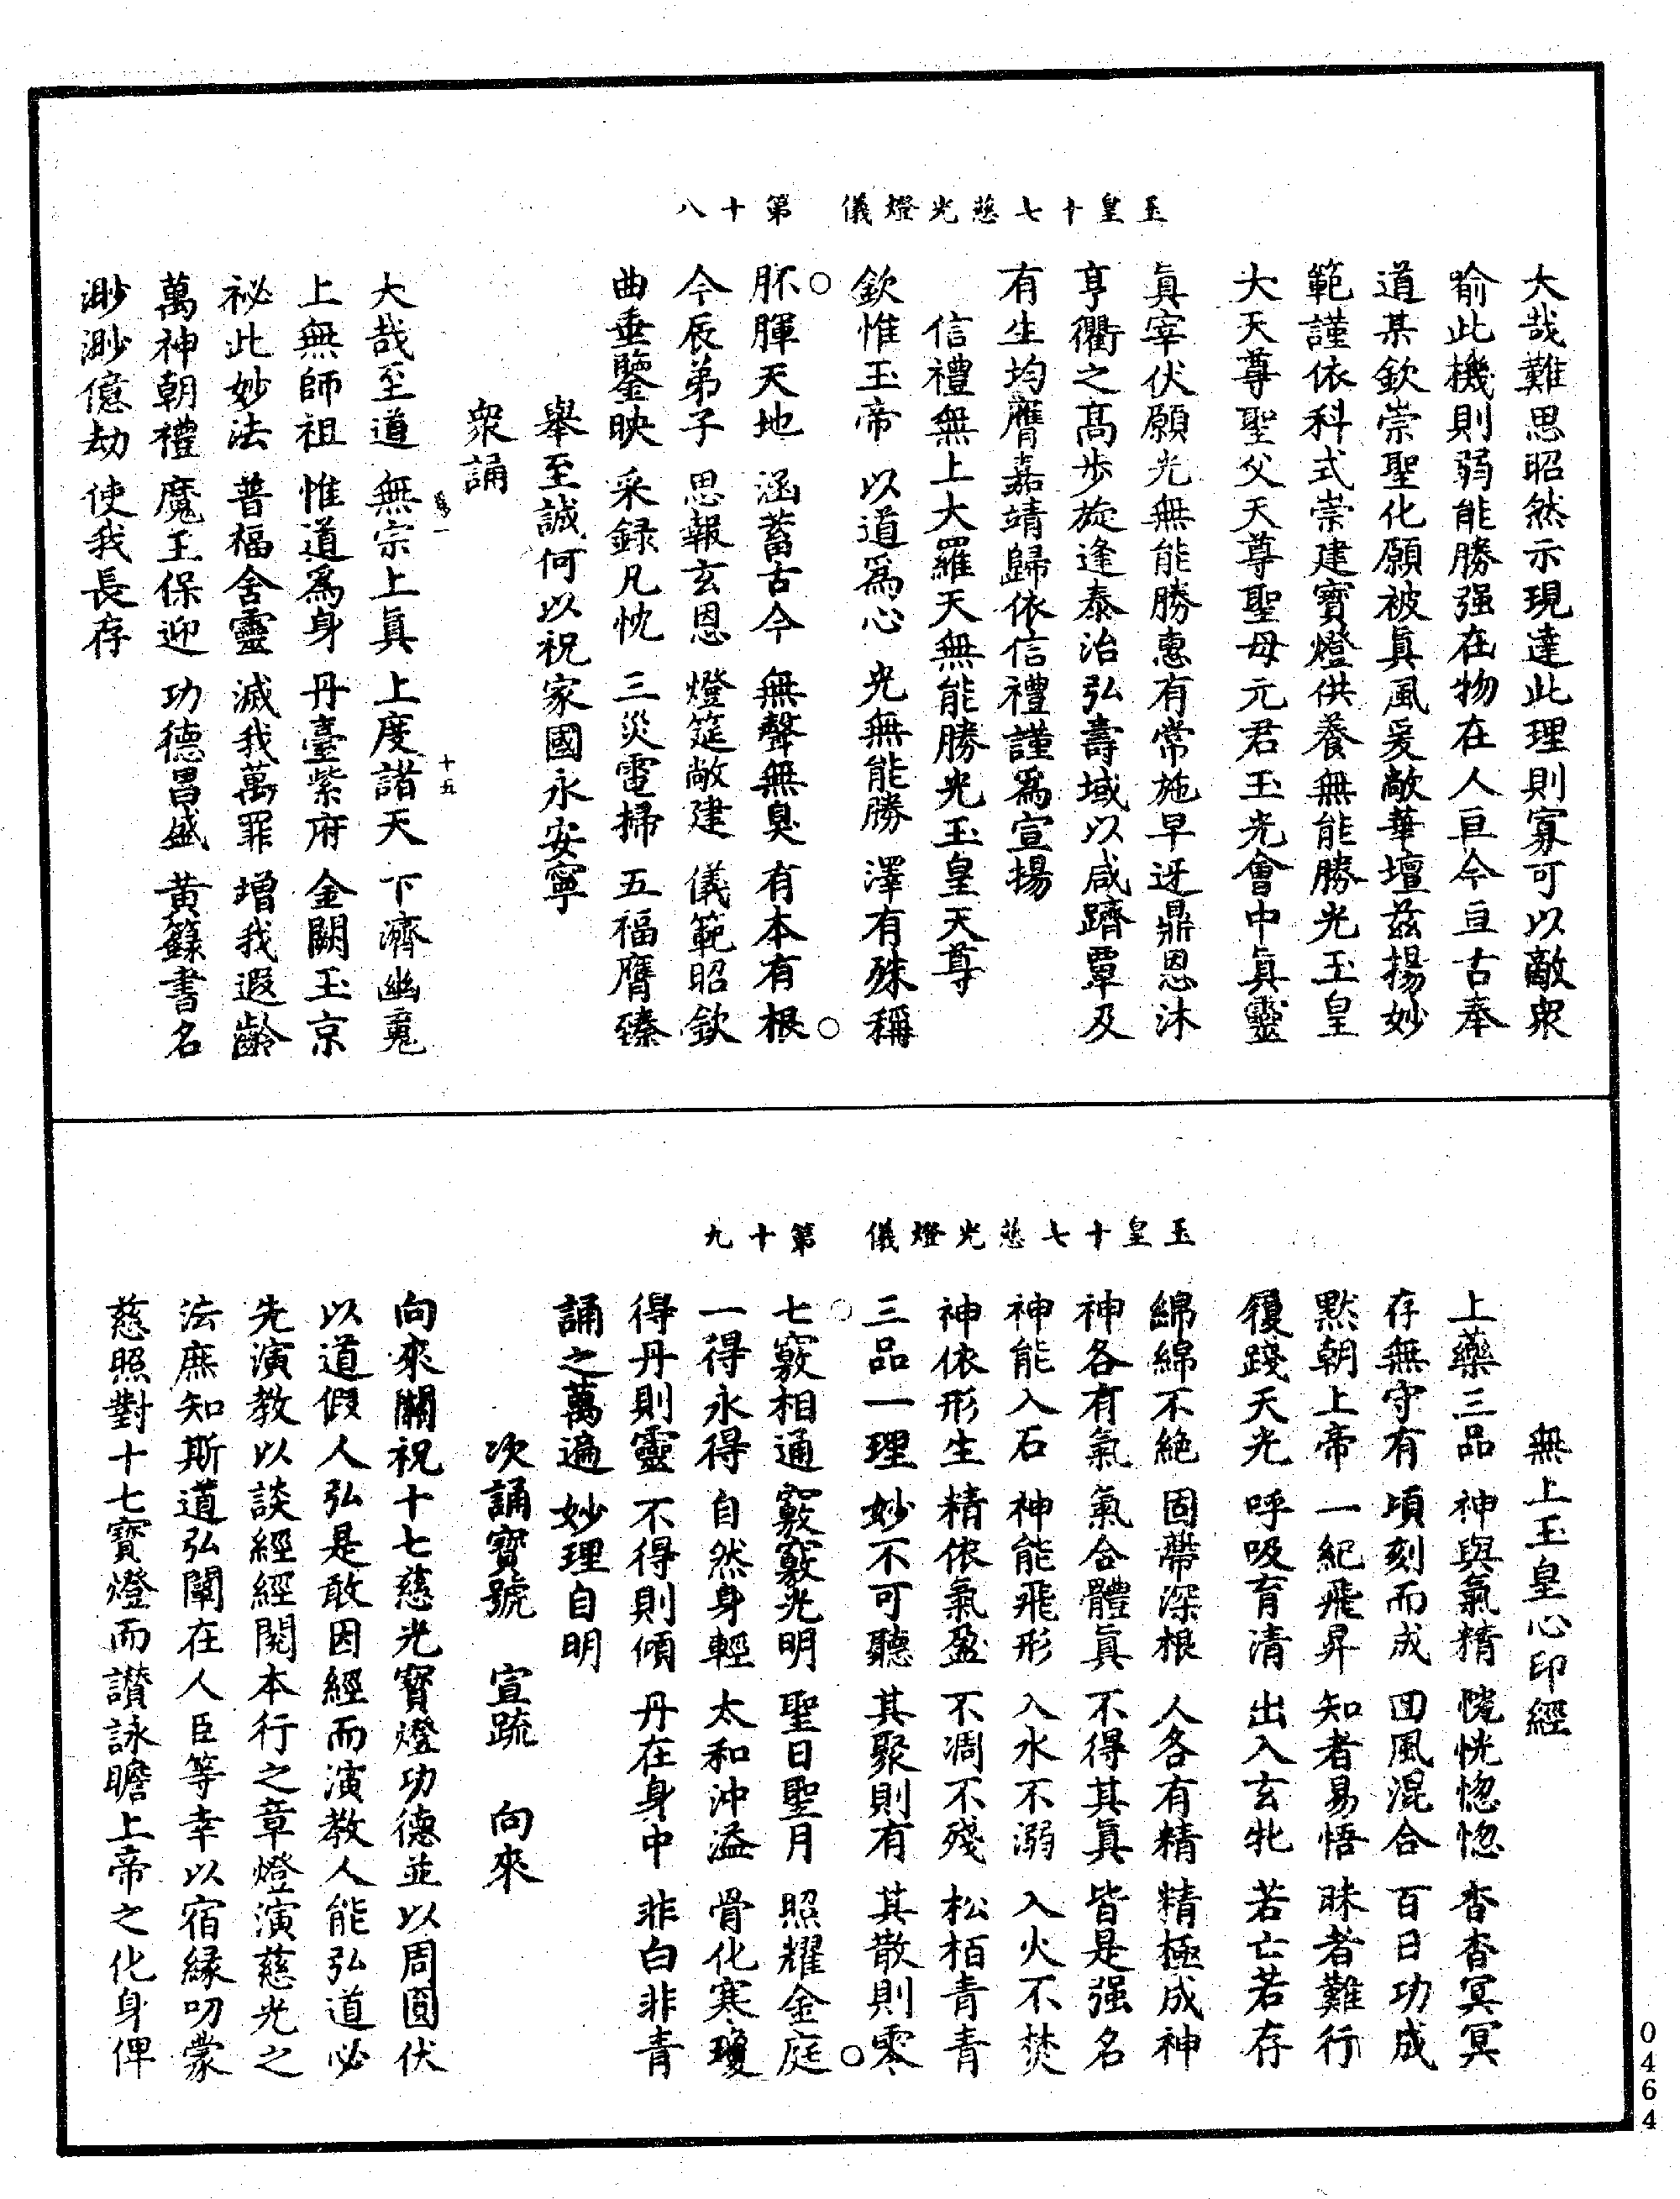 玉皇十七慈光燈儀　第十八
大哉難思昭然示現達此理則寡可以敵衆
喻此機則弱能勝强在物在人亘今亘古奉
道某欽崇聖化願被眞風爰敞華壇茲揚妙
範謹依科式崇建寶燈供養無能勝光玉皇
大天尊聖父天尊聖母元君玉光會中眞靈
眞宰伏願光無能勝惠有常施早迓鼎恩沐
亨衢之髙步旋逢泰治弘壽域以咸躋覃及
有生均膺嘉靖歸依信禮謹爲宣揚
信禮無上大羅天無能勝光玉皇天尊
欽惟玉帝　以道爲心　光無能勝　澤有殊稱
○　○
胚腪天地　涵蓄古今　無聲無臭　有本有根
今辰弟子　思報玄恩　燈筵敞建　儀範昭欽
曲垂鑒映　采録凡忱　三災電掃　五福膺臻
舉至誠何以祝家國永安寧
衆誦
十五
大哉至道　無宗上眞　上度諸天　下濟幽䰟
上無師祖　惟道爲身　丹臺紫府　金闕玉京
祕此妙法　普福含靈　滅我萬罪　增我遐齡
萬神朝禮　魔王保迎　功德昌盛　黄籙書名
渺渺億劫　使我長存
玉皇十七慈光燈儀　第十九
無上玉皇心印經
上藥三品　神與氣精　恍恍惚惚　杳杳冥冥
存無守有　頃刻而成　回風混合　百日功成
默朝上帝　一紀飛昇　知者易悟　昧者難行
履踐天光　呼吸育清　出入玄牝　若亡若存
綿綿不絶　固蔕深根　人各有精　精極成神
神各有氣　氣合體眞　不得其眞　皆是强名
神能入石　神能飛形　入水不溺　入火不焚
神依形生　精依氣盈　不凋不殘　松栢青青
三品一理　妙不可聽　其聚則有　其散則零
○　○
七竅相通　竅竅光明　聖日聖月　照耀金庭
一得永得　自然身輕　太和沖溢　骨化寒瓊
得丹則靈　不得則傾　丹在身中　非白非青
誦之萬遍　妙理自明
次誦寶號　宣疏　向來
向來關祝十七慈光寳燈功德並以周圓伏
以道假人弘是敢因經而演教人能弘道必
先演教以談經經閱本行之章燈演慈光之
法庶知斯道弘闡在人臣等幸以宿縁叨蒙
慈照對十七寶燈而讃詠瞻上帝之化身俾
0464